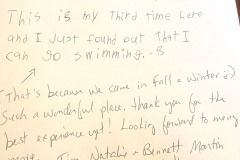 This is my Third time here
and I Just found out That I
can go swimming. -8
(That's because we came in fall & winter :)
Such a wonderful place, thank you for the
best experience yet! Looking forward to many
more. Natalie & Bennett Martin